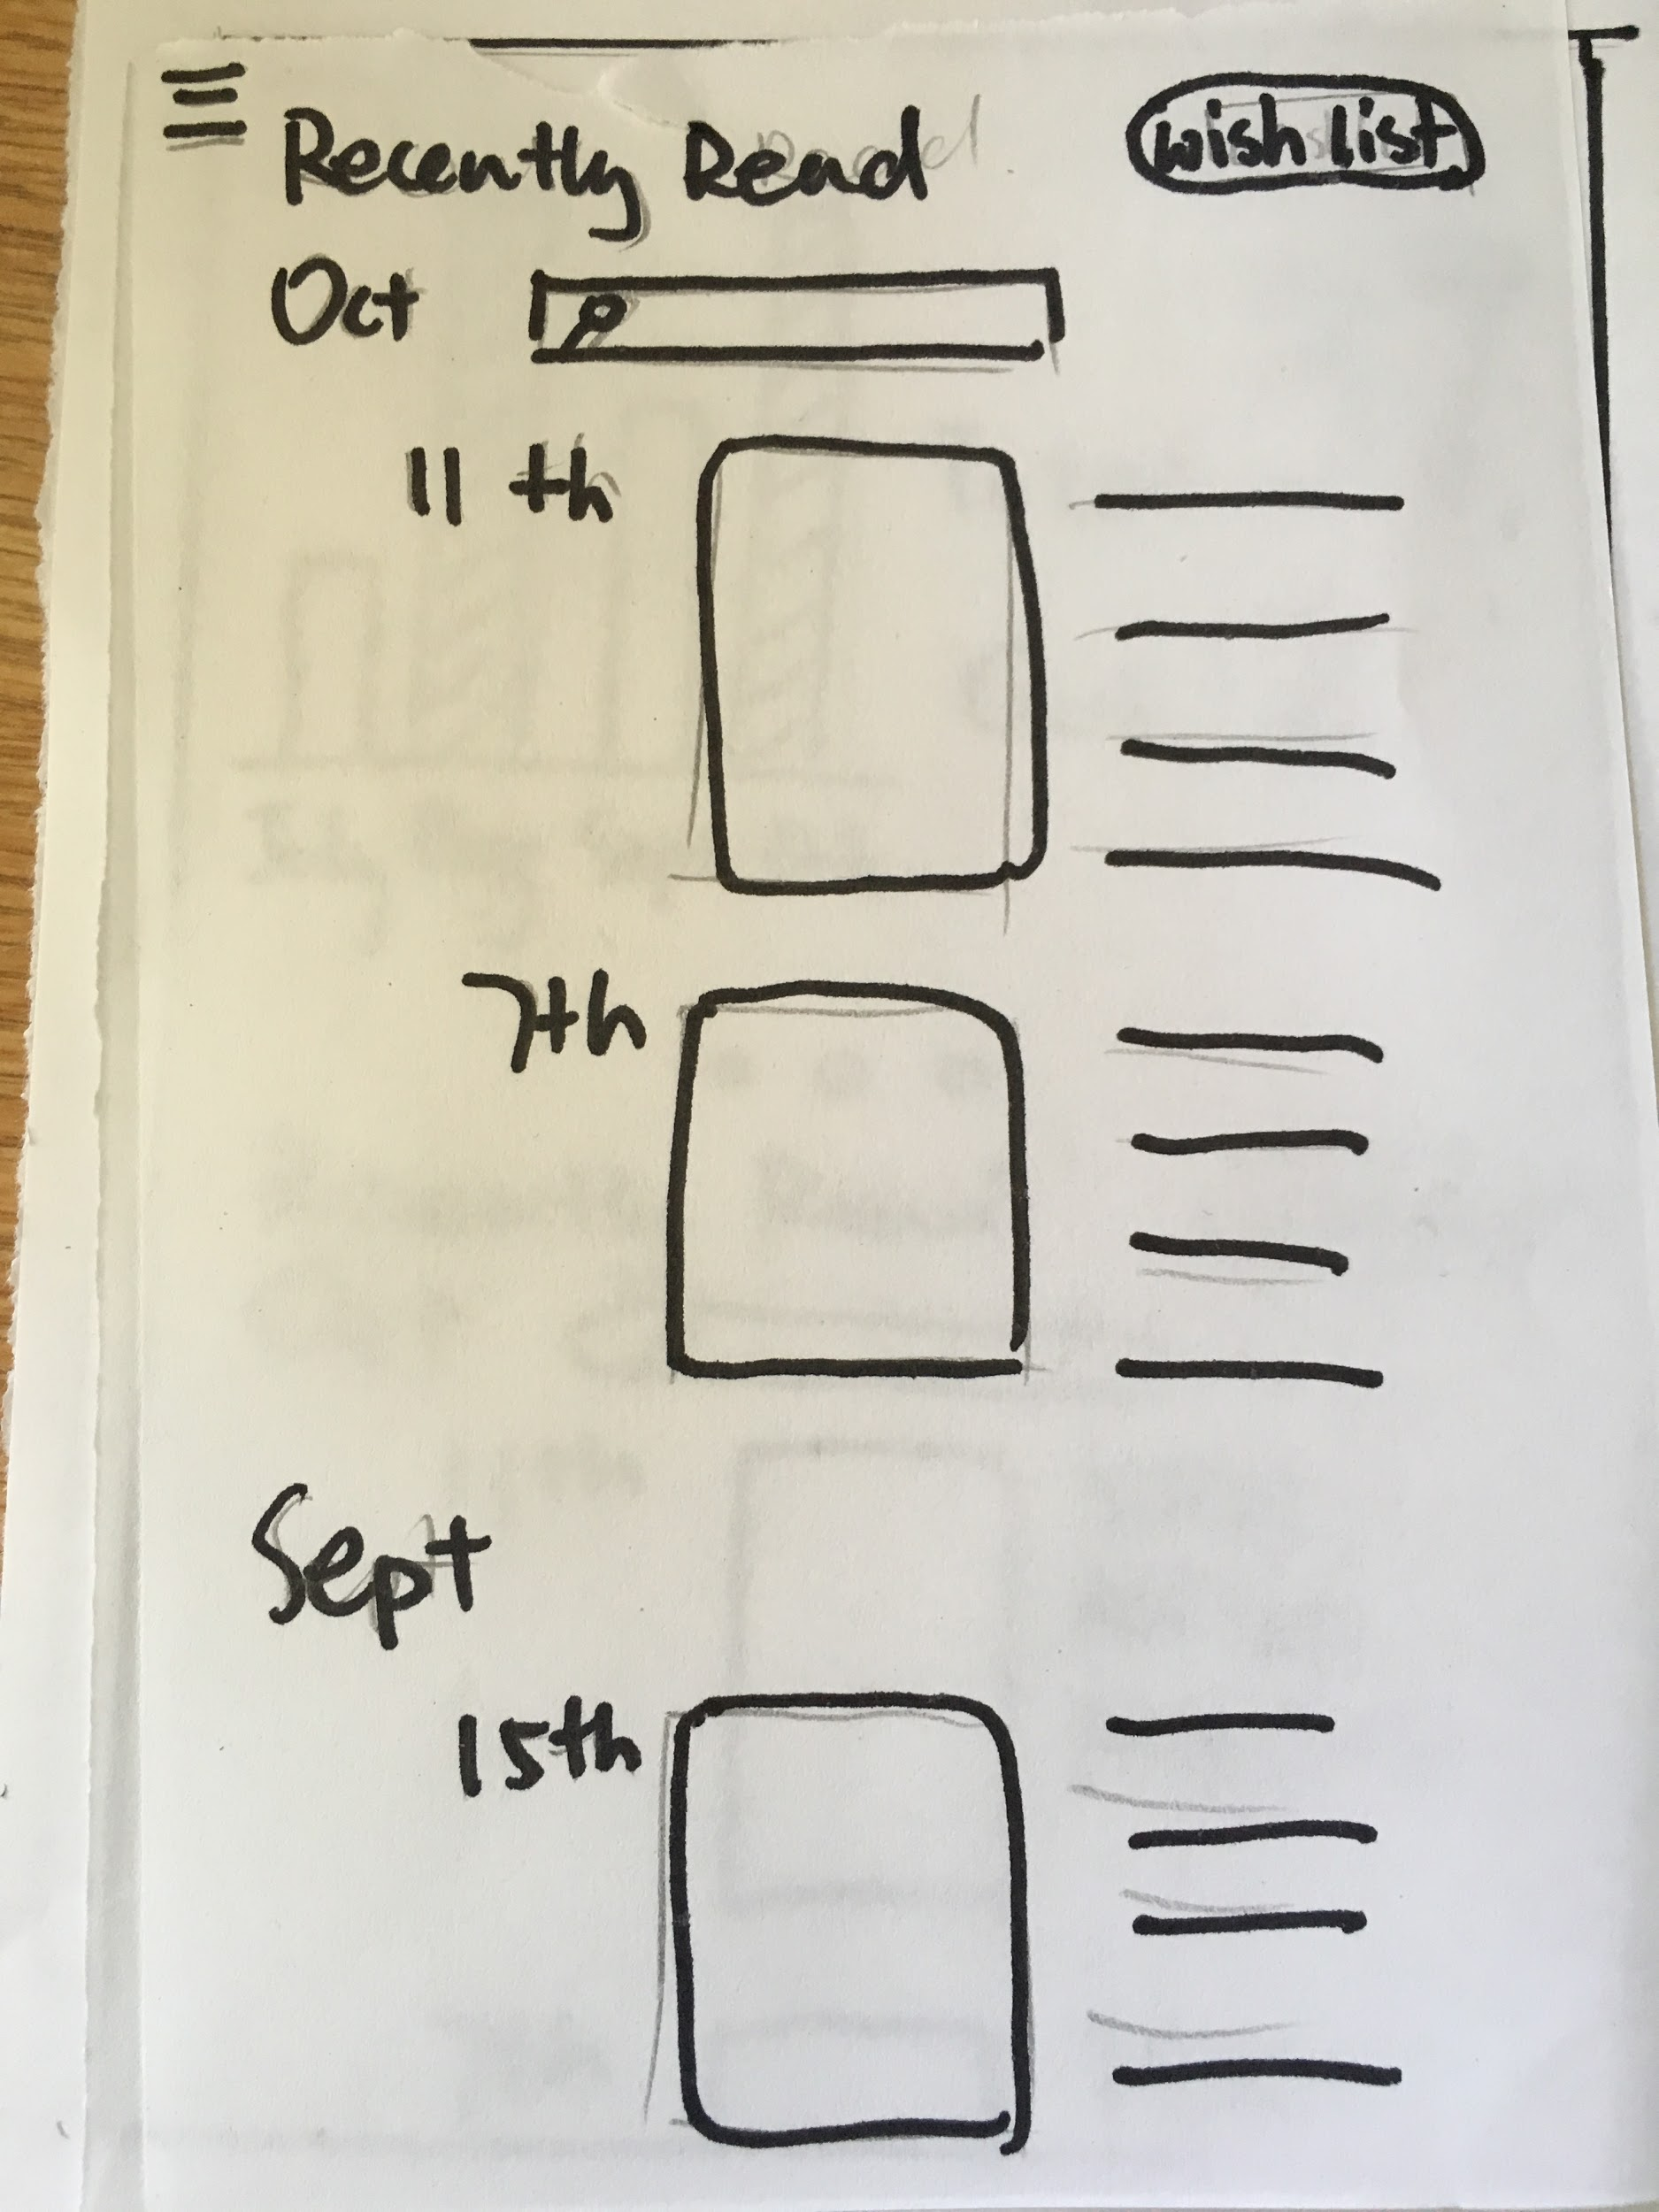 Recently Read
wish list
Oct
11th
7th
Sept
15th